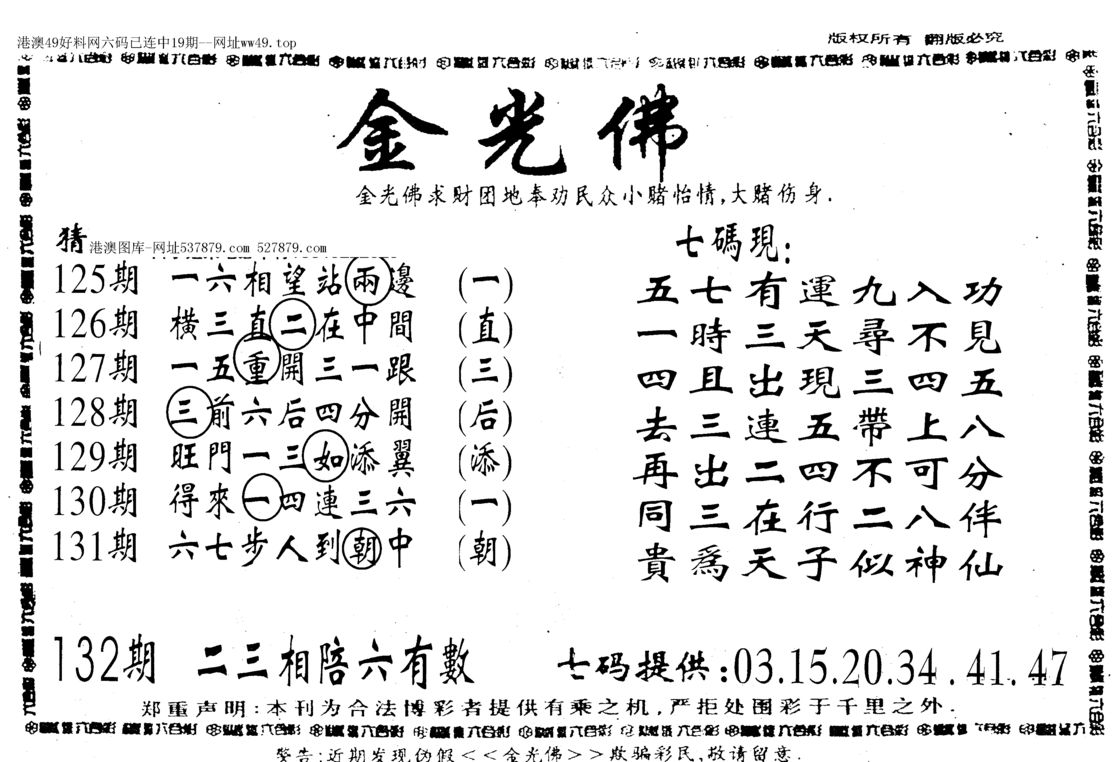 港澳49好料网六码已连中19期--网址ww49.top
版权所有 翻版必究
金光佛
金光佛求财团地奉劝民众小赌怡情,大赌伤身.
猜
港澳图库-网址537879.com 527879.com
125期 一六相望站兩邊 (一)
126期 横三直二在中間 (直)
127期 一五重開三一跟 (三)
128期 三前六后四分開 (后)
129期 旺門一三如添翼 (添)
130期 得來一四連三六 (一)
131期 六七步人到朝中 (朝)
七碼現:
五七有運九入功
一時三天尋不見
四且出現三四五
去三連五帶上八
再出二四不可分
同三在行二八伴
貴爲天子似神仙
132期 二三相陪六有數
七码提供:03.15.20.34.41.47
郑重声明:本刊为合法博彩者提供有乘之机,严拒处围彩于千里之外.
警告:近期发现伪假<<金光佛>>欺骗彩民,敬请留意.